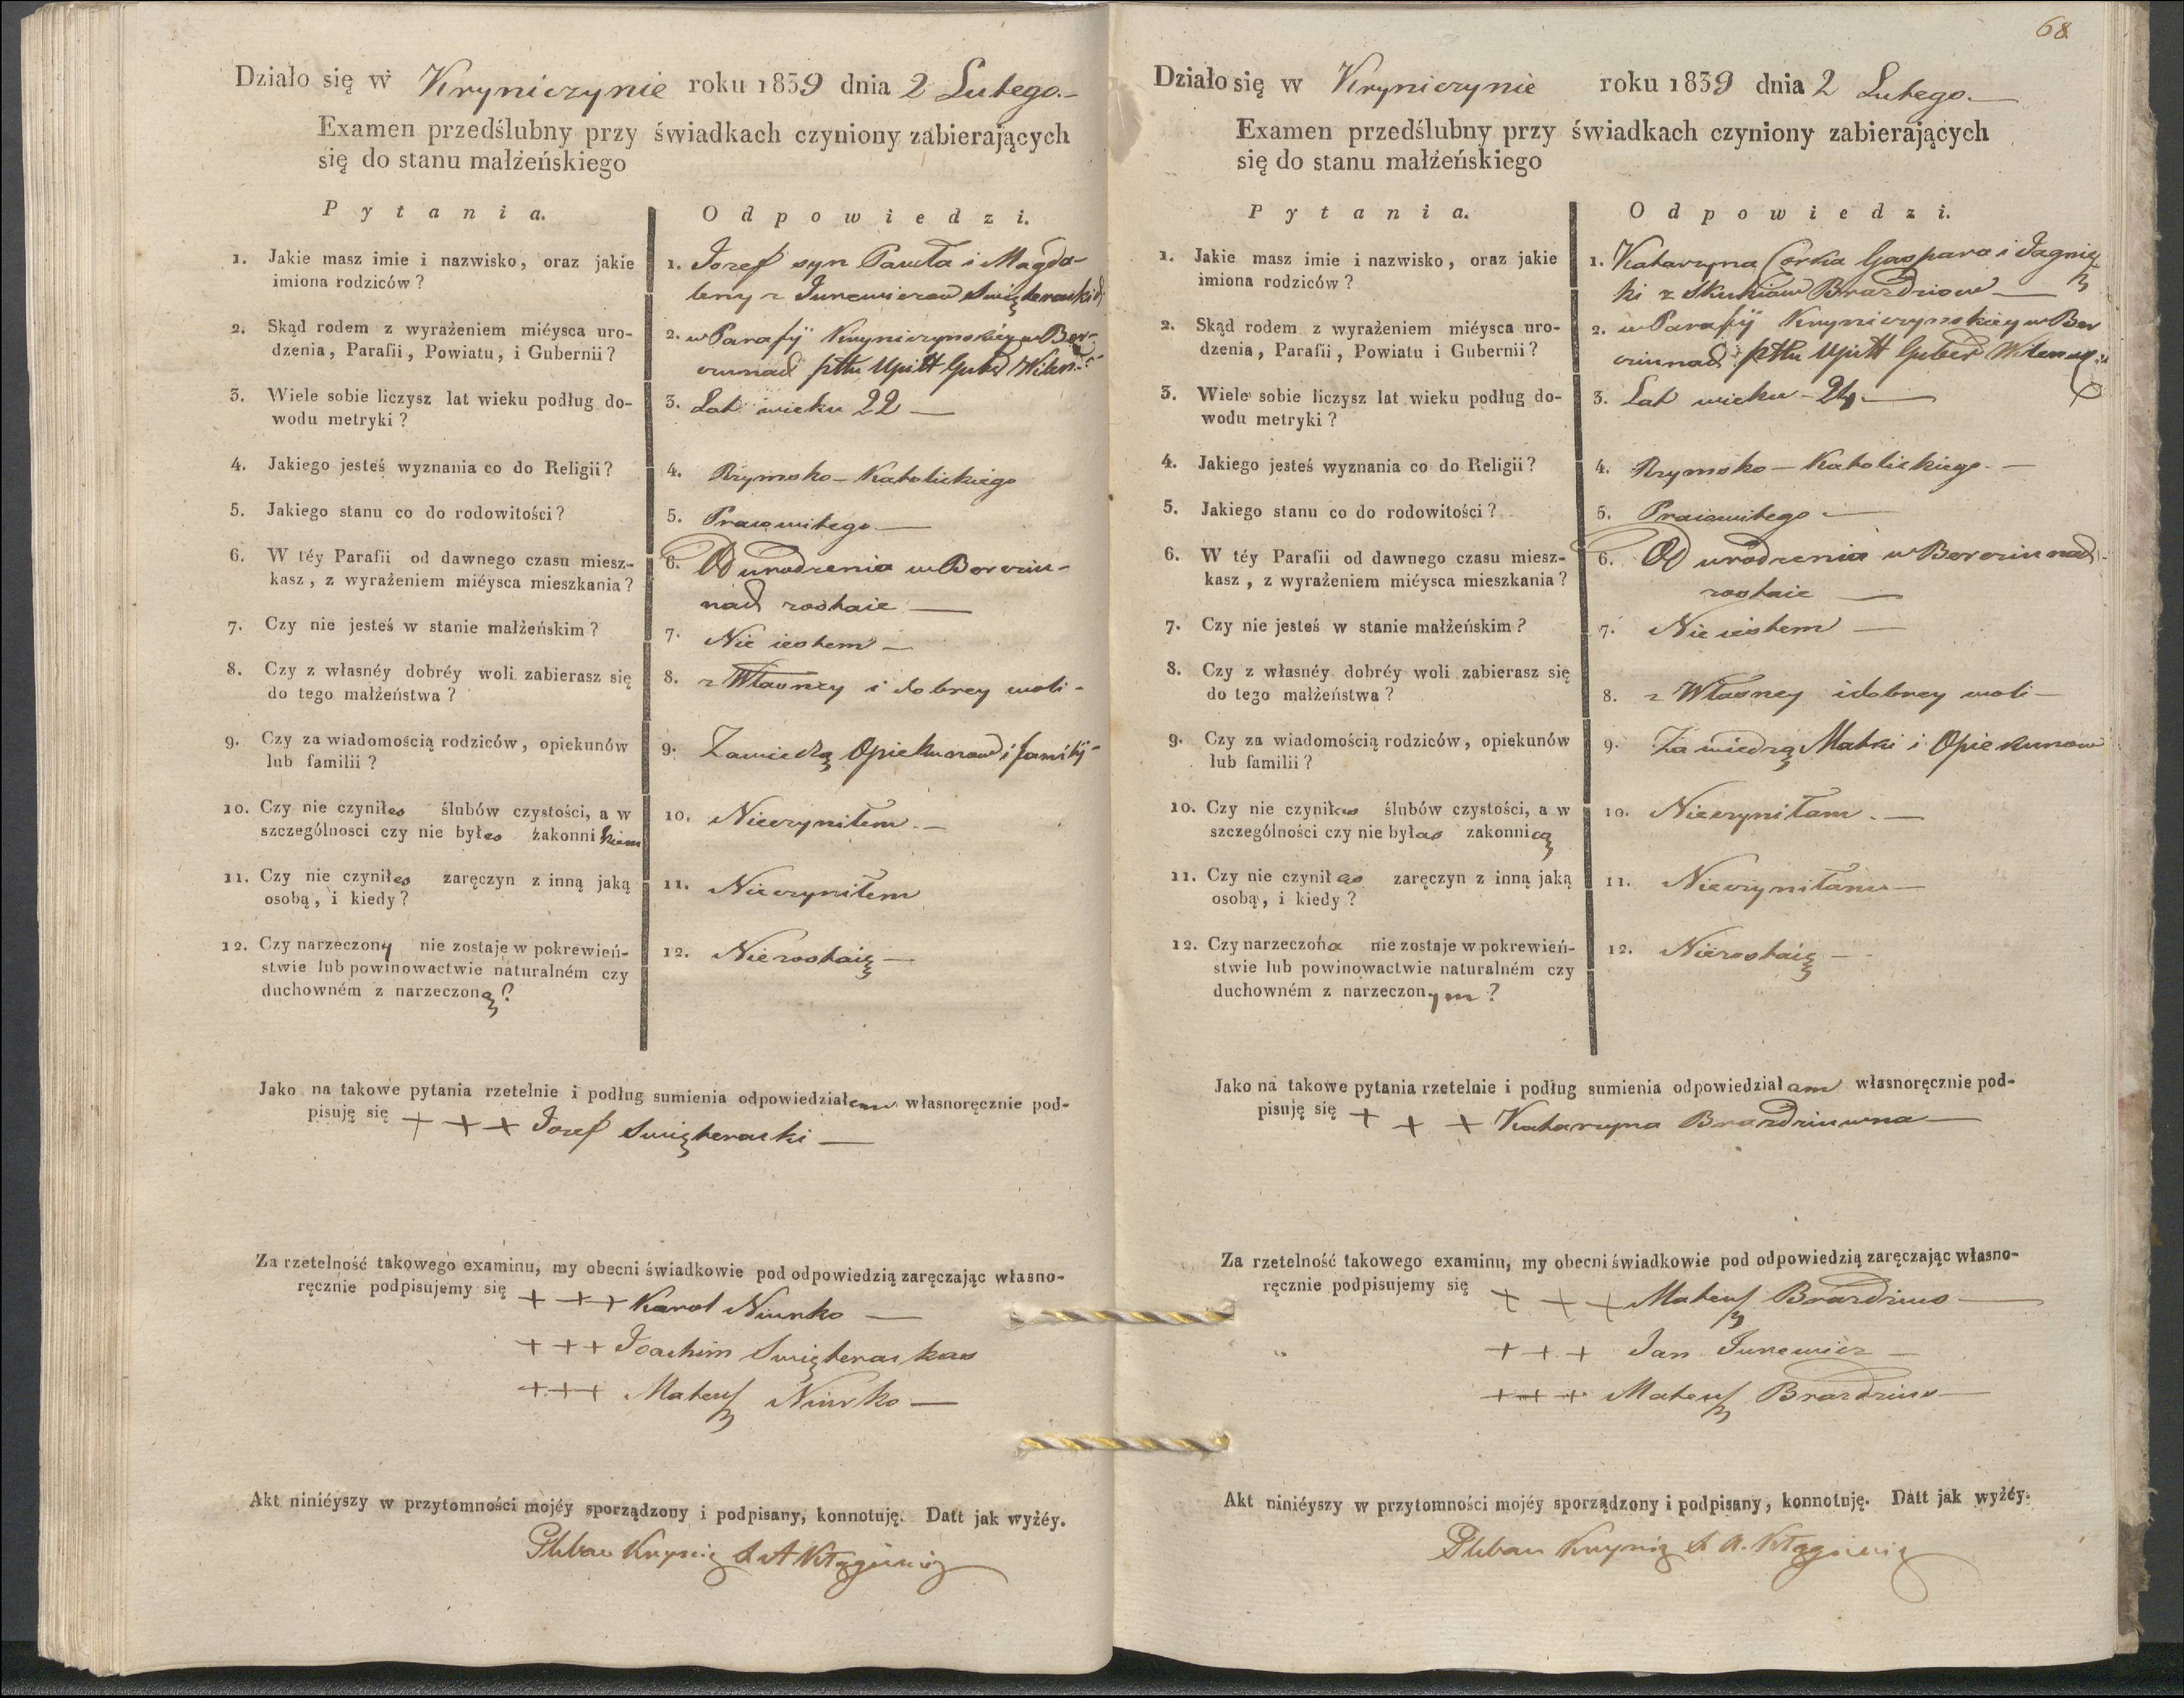 Działo się w Kryniczynie roku 1839 dnia 2 Lutego.-
Examen przedślubny przy świadkach czyniony zabierających
się do stanu małżeńskiego
Pytania.
Odpowiedzi.
1. Jakie masz imie i nazwisko, oraz jakie
imiona rodziców?
1. Jozef syn Pawła i Magda-
leny z Junewiczow
2. Skąd rodem z wyrażeniem miéysca uro-
dzenia, Parafii, Powiatu, i Gubernii?
2. w Parafij Kryniczynskiey w Ber-
cziunach pttu Upitt Guber Wilen.
3. Wiele sobie liczysz lat wieku podług do-
wodu metryki?
3. Lat wieku 22 —
4. Jakiego jesteś wyznania co do Religii?
4. Rzymsko-Katolickiego
5. Jakiego stanu co do rodowitości?
5. Pracowitego —
6. W téy Parafii od dawnego czasu miesz-
kasz, z wyrażeniem miéysca mieszkania?
6. Od urodzenia w Bercziu-
nach zostaie —
7. Czy nie jesteś w stanie małżeńskim?
7. Nie iestem —
8. Czy z własnéy dobréy woli zabierasz się
do tego małżeństwa?
8. z Własney i dobrey woli -
9. Czy za wiadomością rodziców, opiekunów
lub familii?
9. Zawiedzą Opiekunow i familij-
10. Czy nie czyniłes ślubów czystości, a w
szczególnosci czy nie byłes zakonnikiem
10. Nieczyniłem —
11. Czy nie czyniłes zaręczyn z inną jaką
osobą, i kiedy?
11. Nieczyniłem
12. Czy narzeczony nie zostaje w pokrewień-
stwie lub powinowactwie naturalném czy
duchowném z narzeczoną?
12. Niezostaię —
Jako na takowe pytania rzetelnie i podług sumienia odpowiedziałem własnoręcznie pod-
pisuję się + + + Jozef Swięteracki —
Za rzetelność takowego examinu, my obecni świadkowie pod odpowiedzią zaręczając własno-
ręcznie podpisujemy się + + + Karol Niurko —
+ + + Joachim Swięterackas
+ + + Mateusz Niurko —
Akt niniéyszy w przytomności mojéy sporządzony i podpisany, konnotuję. Datt jak wyżéy.
Pleban
68
Działo się w Kryniczynie roku 1839 dnia 2 Lutego.—
Examen przedślubny przy świadkach czyniony zabierających
się do stanu małżeńskiego
Pytania.
Odpowiedzi.
1. Jakie masz imie i nazwisko, oraz jakie
imiona rodziców?
1. Katarzyna Corka Gaspara i Jagnisz
ki z Skukiow Brazdziow —
2. Skąd rodem z wyrażeniem miéysca uro-
dzenia, Parafii, Powiatu i Gubernii?
2. w Parafij Kryniczynskiey w Ber
cziunach pttu Upitt Guber Wilen
3. Wiele sobie liczysz lat wieku podług do-
wodu metryki?
3. Lat wieku - 24 —
4. Jakiego jesteś wyznania co do Religii?
4. Rzymsko-Katolickiego —
5. Jakiego stanu co do rodowitości?
5. Pracowitego —
6. W téy Parafii od dawnego czasu miesz-
kasz, z wyrażeniem miéysca mieszkania?
6. Od urodzenia w Bercziunach-
zostaie —
7. Czy nie jesteś w stanie małżeńskim?
7. Nie iestem —
8. Czy z własnéy dobréy woli zabierasz się
do tego małżeństwa?
8. z Własney i dobrey woli —
9. Czy za wiadomością rodziców, opiekunów
lub familii?
9. Za wiedzą Matki i Opiekunow
10. Czy nie czyniłas ślubów czystości, a w
szczególności czy nie byłas zakonnicą
10. Nieczyniłam —
11. Czy nie czyniłas zaręczyn z inną jaką
osobą, i kiedy?
11. Nieczyniłam —
12. Czy narzeczona nie zostaje w pokrewień-
stwie lub powinowactwie naturalném czy
duchowném z narzeczonym?
12. Niezostaię —
Jako na takowe pytania rzetelnie i podług sumienia odpowiedziałam własnoręcznie pod-
pisuję się + + + Katarzyna Brazdziuwna —
Za rzetelność takowego examinu, my obecni świadkowie pod odpowiedzią zaręczając własno-
ręcznie podpisujemy się + + + Mateusz Brazdzius —
+ + + Jan Junewicz —
+ + + Mateusz Brazdzius —
Akt niniéyszy w przytomności mojéy sporządzony i podpisany, konnotuję. Datt jak wyżéy.
Pleban